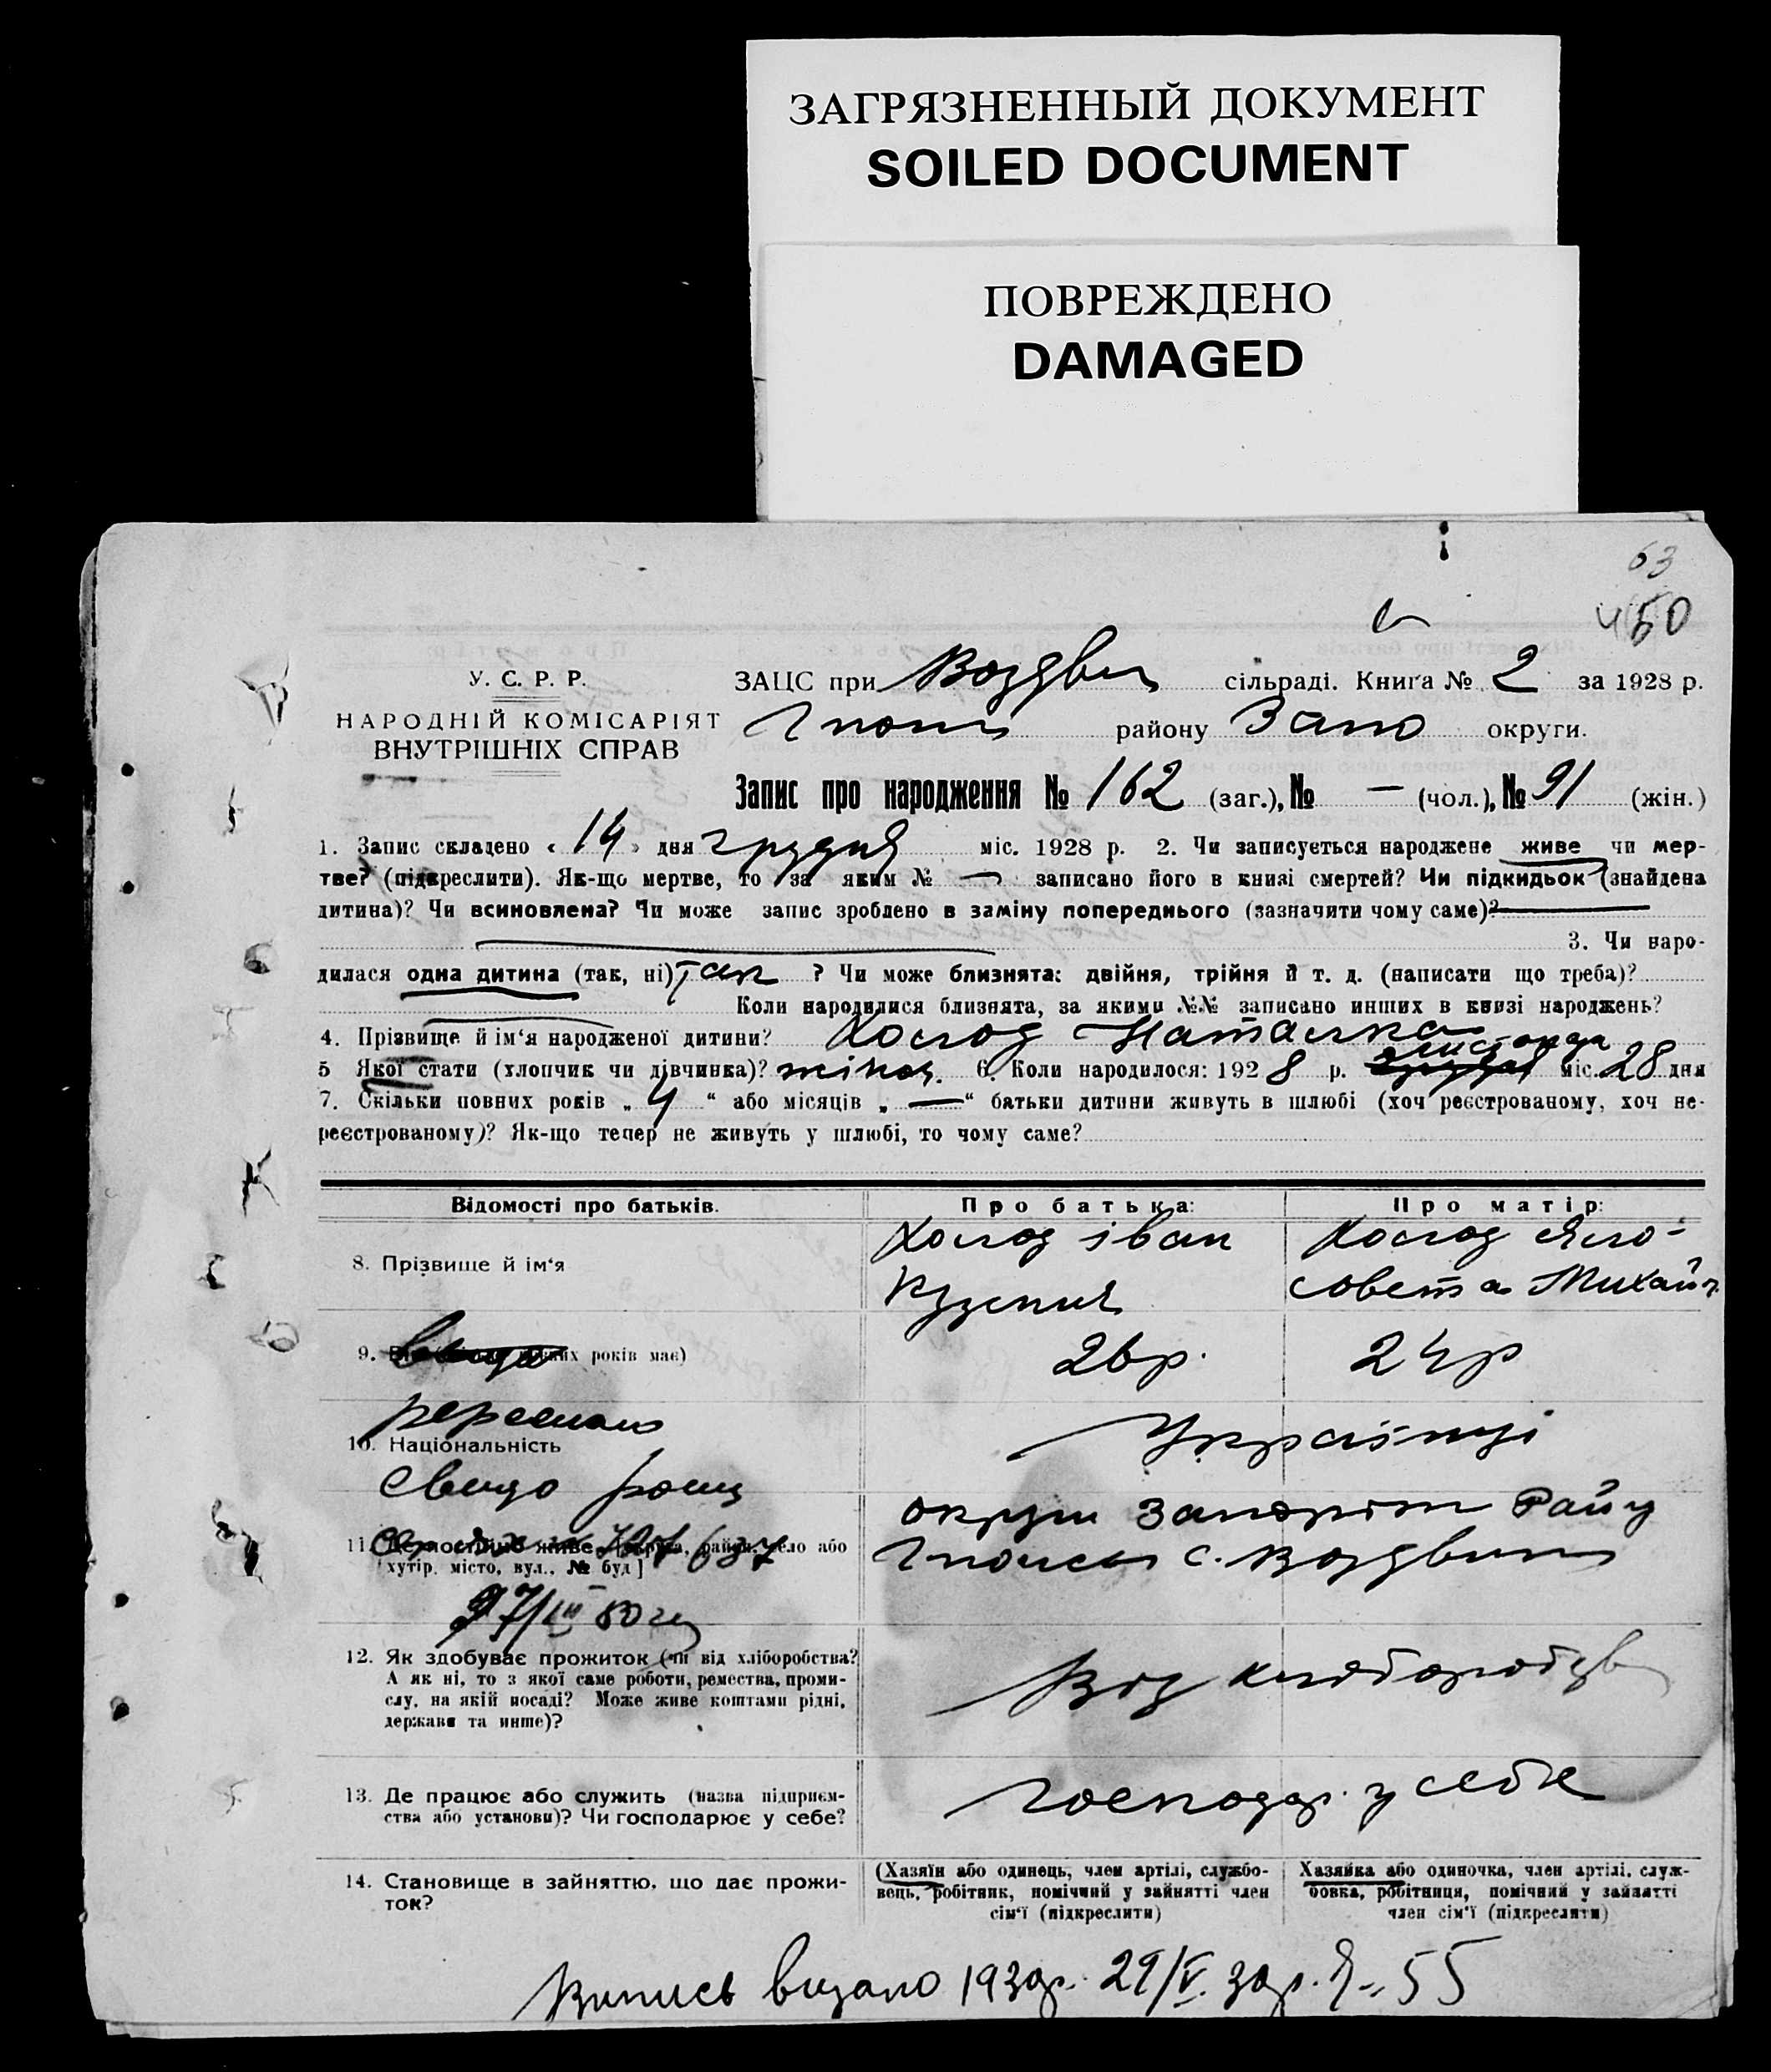 ЗАГРЯЗНЕННЫЙ ДОКУМЕНТ
SOILED DOCUMENT
ПОВРЕЖДЕНО
DAMAGED
63
50
У. С. Р. Р.
НАРОДНІЙ КОМІСАРІЯТ
ВНУТРІШНІХ СПРАВ
ЗАЦС при Воздвиж сільраді. Книга № 2 за 1928 р.
району Запо округи.
Запис про народження № 162 (заг.), № — (чол.), № 91 (жін.)
1. Запис складено « 14 » дня грудня міс. 1928 р. 2. Чи записується народжене живе чи мер-
тве? (підкреслити). Як-що мертве, то за яким № — записано його в книзі смертей? Чи підкидьок (знайдена
дитина)? Чи всиновлена? Чи може запис зроблено в заміну попереднього (зазначити чому саме)?
3. Чи наро-
дилася одна дитина (так, ні) так ? Чи може близнята: двійня, трійня й т. д. (написати що треба)?
Коли народилися близнята, за якими №№ записано инших в книзі народжень?
4. Прізвище й ім'я народженої дитини? Холод Наталка
листопада
5 Якої стати (хлопчик чи дівчинка)? жіноч. 6. Коли народилося: 1928 р. міс. 28 дня
7. Скільки повних років „ 4 " або місяців „ — " батьки дитини живуть в шлюбі (хоч реєстрованому, хоч не-
реєстрованому)? Як-що тепер не живуть у шлюбі, то чому саме?
Відомості про батьків. Про батька: Про матір:
8. Прізвище й ім'я
Холод іван
Кузьмич
Холод Єли-
совета Михайл.
9. років має) 26 р. 24 р
10. Національність Українці
Свидо
11. Де постійно живе округа, район, село або
хутір, місто, вул., № буд]
округи Запоріж Райну
с. Воздвиж
27/III 50 г
12. Як здобуває прожиток (чи від хліборобства?
А як ні, то з якої саме роботи, ремества, проми-
слу, на якій посаді? Може живе коштами рідні,
держави та инше)?
Від хліборобств
13. Де працює або служить (назва підприєм-
ства або установи)? Чи господарює у себе?
Господар. у себе
14. Становище в зайняттю, що дає прожи-
ток?
(Хазяїн або одинець, член артілі, службо-
вець, робітник, помічний у зайнятті член
сім'ї (підкреслити)
Хазяйка або одиночка, член артілі, служ-
бовка, робітниця, помічний у зайнятті
член сім'ї (підкреслити)
Випись видано 1930р. 29/V 30р. 55